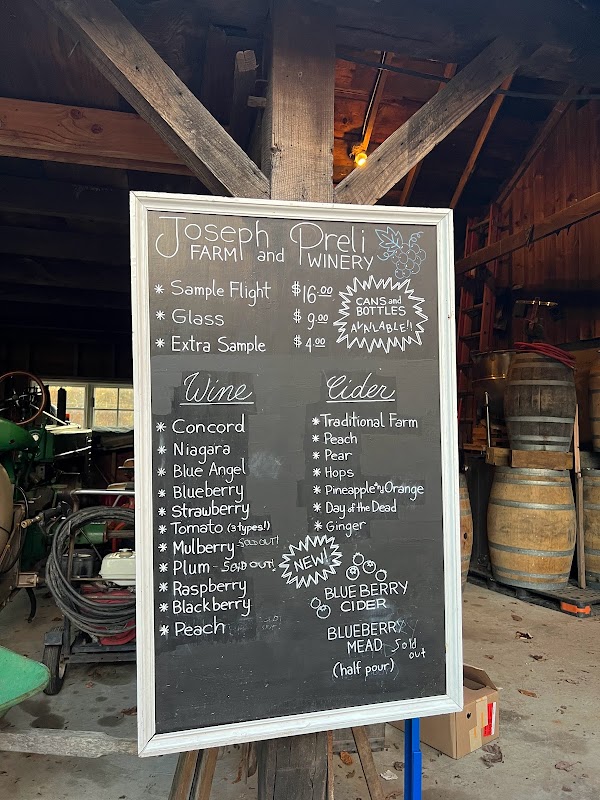 Joseph Preli
FARM and WINERY
* Sample Flight $16.00
* Glass $9.00
* Extra Sample $4.00
CANS and
BOTTLES
AVAILABLE!!
Wine
* Concord
* Niagara
* Blue Angel
* Blueberry
* Strawberry
* Tomato (3 types!)
* Mulberry - SOLD OUT!
* Plum - SOLD OUT!
* Raspberry
* Blackberry
* Peach
Cider
* Traditional Farm
* Peach
* Pear
* Hops
* Pineapple Orange
* Day of the Dead
* Ginger
NEW!
BLUEBERRY
CIDER
BLUEBERRY
MEAD Sold
out
(half pour)